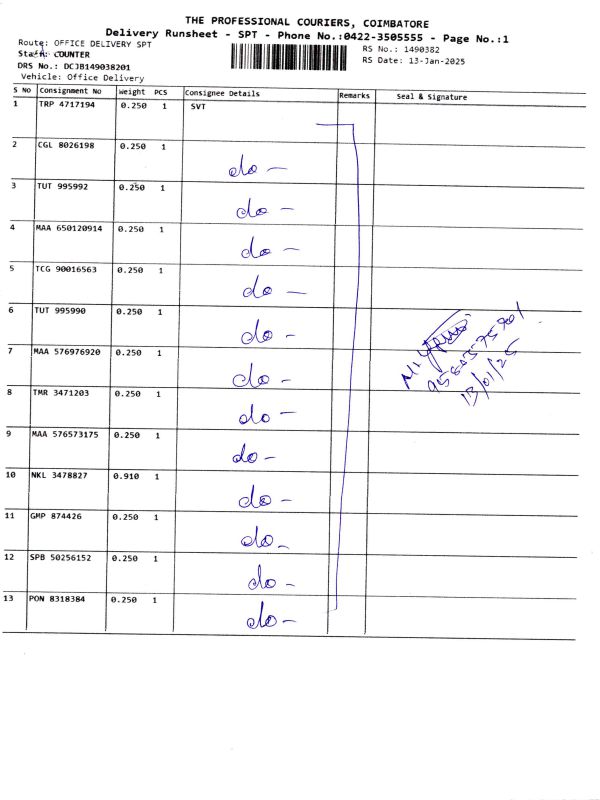 THE PROFESSIONAL COURIERS, COIMBATORE
Delivery Runsheet - SPT - Phone No.:0422-3505555 - Page No.:1
Route: OFFICE DELIVERY SPT
Staff: COUNTER
DRS No.: DCJB149038201
Vehicle: Office Delivery
RS No.: 1490382
RS Date: 13-Jan-2025
S No Consignment No Weight PCS Consignee Details Remarks Seal & Signature
1 TRP 4717194 0.250 1 SVT
2 CGL 8026198 0.250 1 do -
3 TUT 995992 0.250 1 do -
4 MAA 650120914 0.250 1 do -
5 TCG 90016563 0.250 1 do -
6 TUT 995990 0.250 1 do -
7 MAA 576976920 0.250 1 do -
8 TMR 3471203 0.250 1 do -
9 MAA 576573175 0.250 1 do -
10 NKL 3478827 0.910 1 do -
11 GMP 874426 0.250 1 do -
12 SPB 50256152 0.250 1 do -
13 PON 8318384 0.250 1 do -
13/01/25